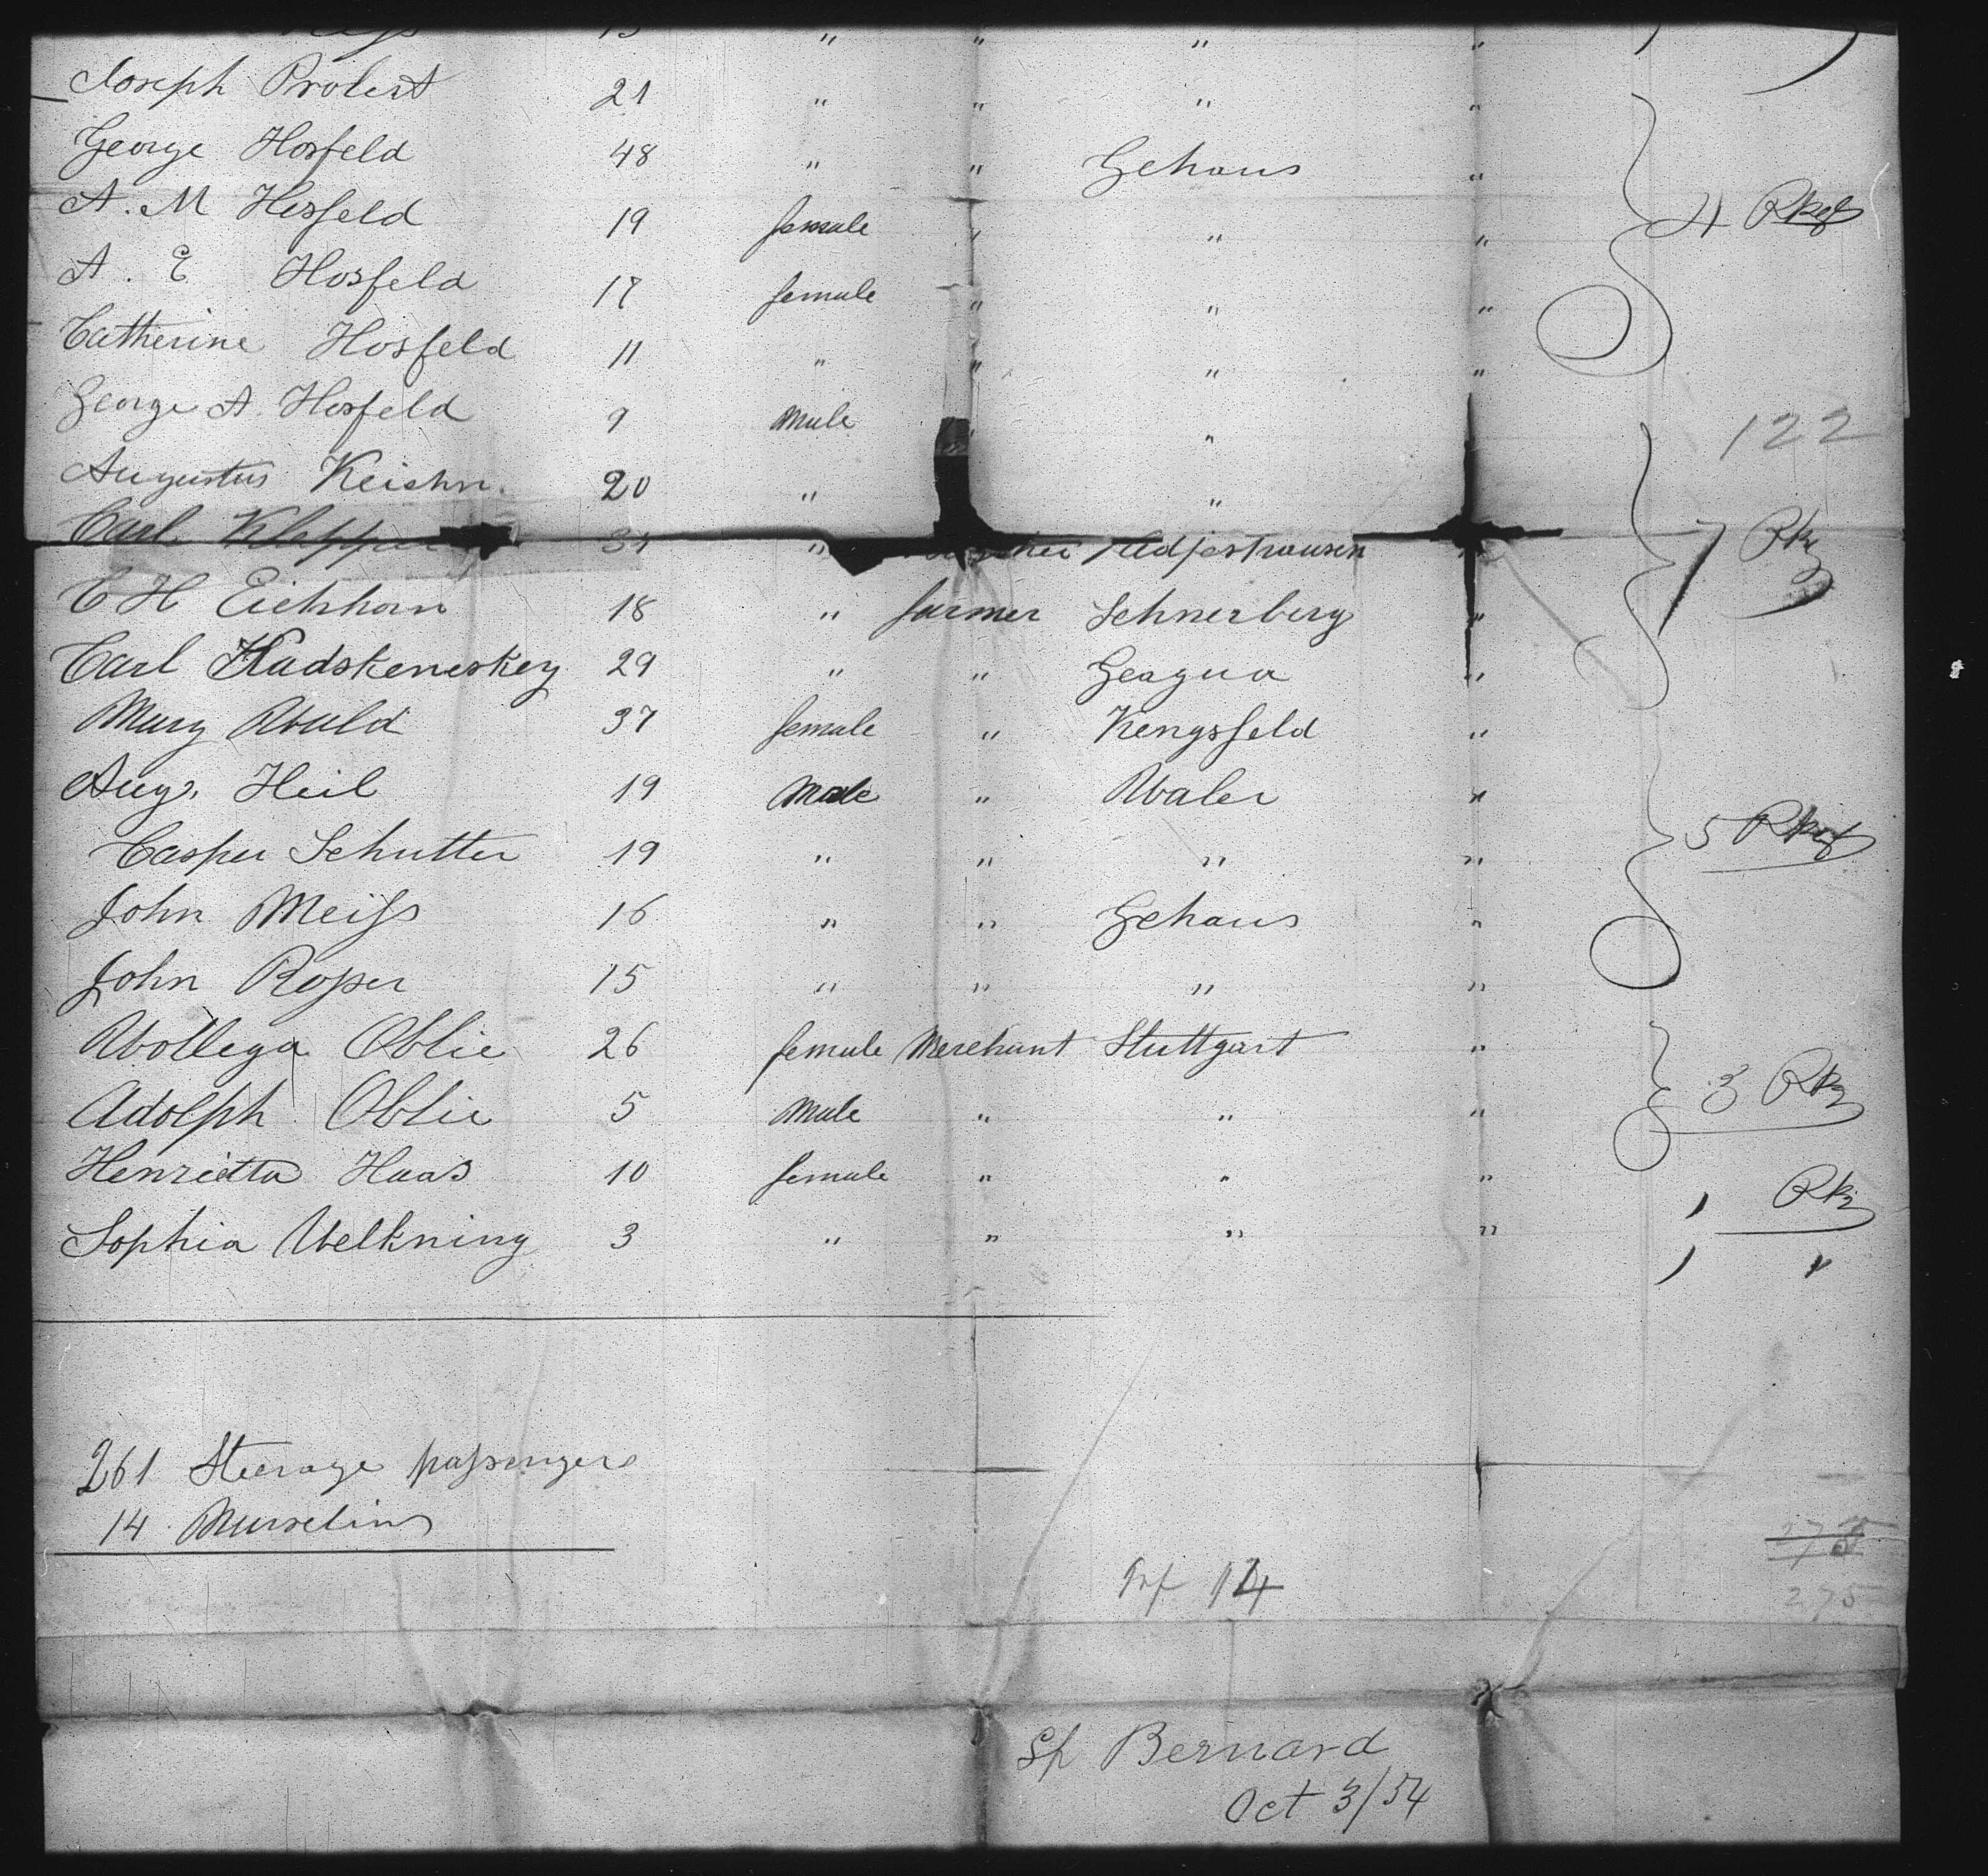 " " " "
Joseph Probert 21 " " " "
George Hosfeld 48 " " Gehaus "
A. M Hosfeld 19 female " " " 4 Pkgs
A. E Hosfeld 17 female " " "
Catherine Hosfeld 11 " " " "
George A. Hosfeld 9 Male " " 122
Augustus Keishn. 20 " "
Carl 31 " 7 Pkg
C H Eichhorn 18 " farmer Schnerberg "
Carl 29 " " Geagua "
Mary Wald 37 female " Kengsfeld "
Aug. Heil 19 Male " Waler "
Casper Schutter 19 " " " " 5 Pkgs
John Meiss 16 " " Gehaus "
John Roper 15 " " " "
Oblie 26 female Merchant Stuttgart "
Adolph Oblie 5 Male " " " 3 Pkg
Henrietta Haas 10 female " " " 1 Pkg
Sophia Welkning 3 " " " " 1 "
261 Steerage passengers
14
275
14
275
Sp Bernard
Oct 3/54